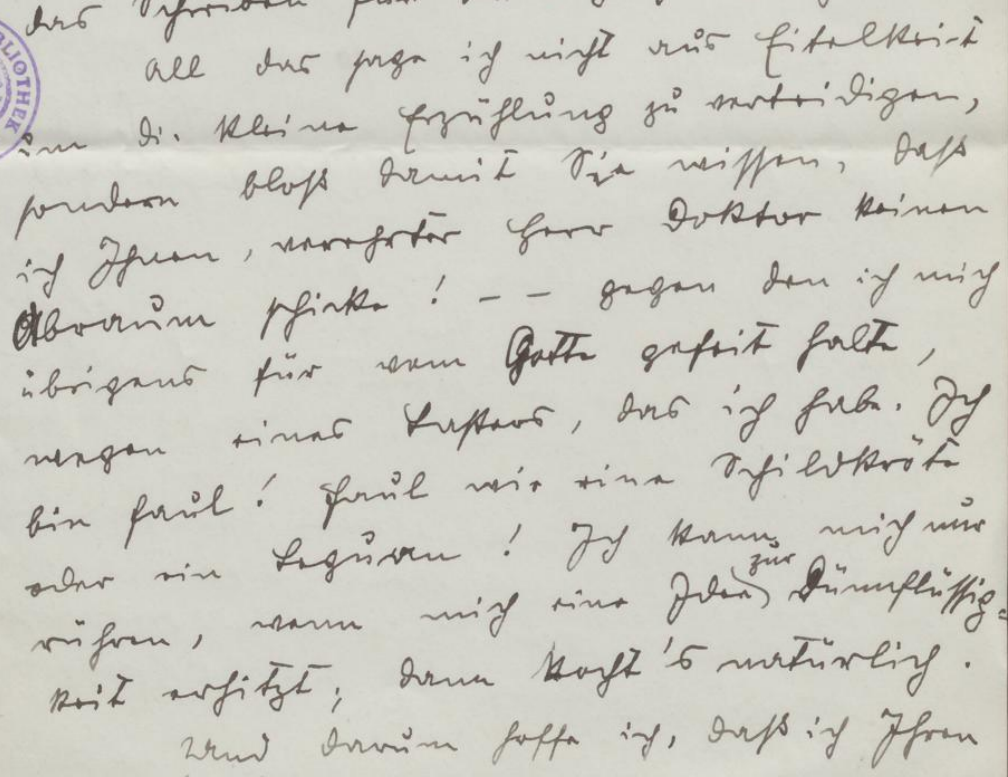 das Schreiben für
All das sage ich nicht aus Eitelkeit
um die kleine Erzählung zu verteidigen,
sondern bloß damit Sie wissen, daß
ich Ihnen, verehrter Herr Doktor keinen
Abraum schicke! – – gegen den ich mich
übrigens für vom Gotte gefeit halte,
wegen eines Lasters, das ich habe. Ich
bin faul! Faul wie eine Schildkröte
oder ein Leguan! Ich kann mich nur
rühren, wenn mich eine Idee zur Dünnflüssig=
keit erhitzt; dann kocht's natürlich.
Und darum hoffe ich, daß ich Ihren
BLIOTHEK